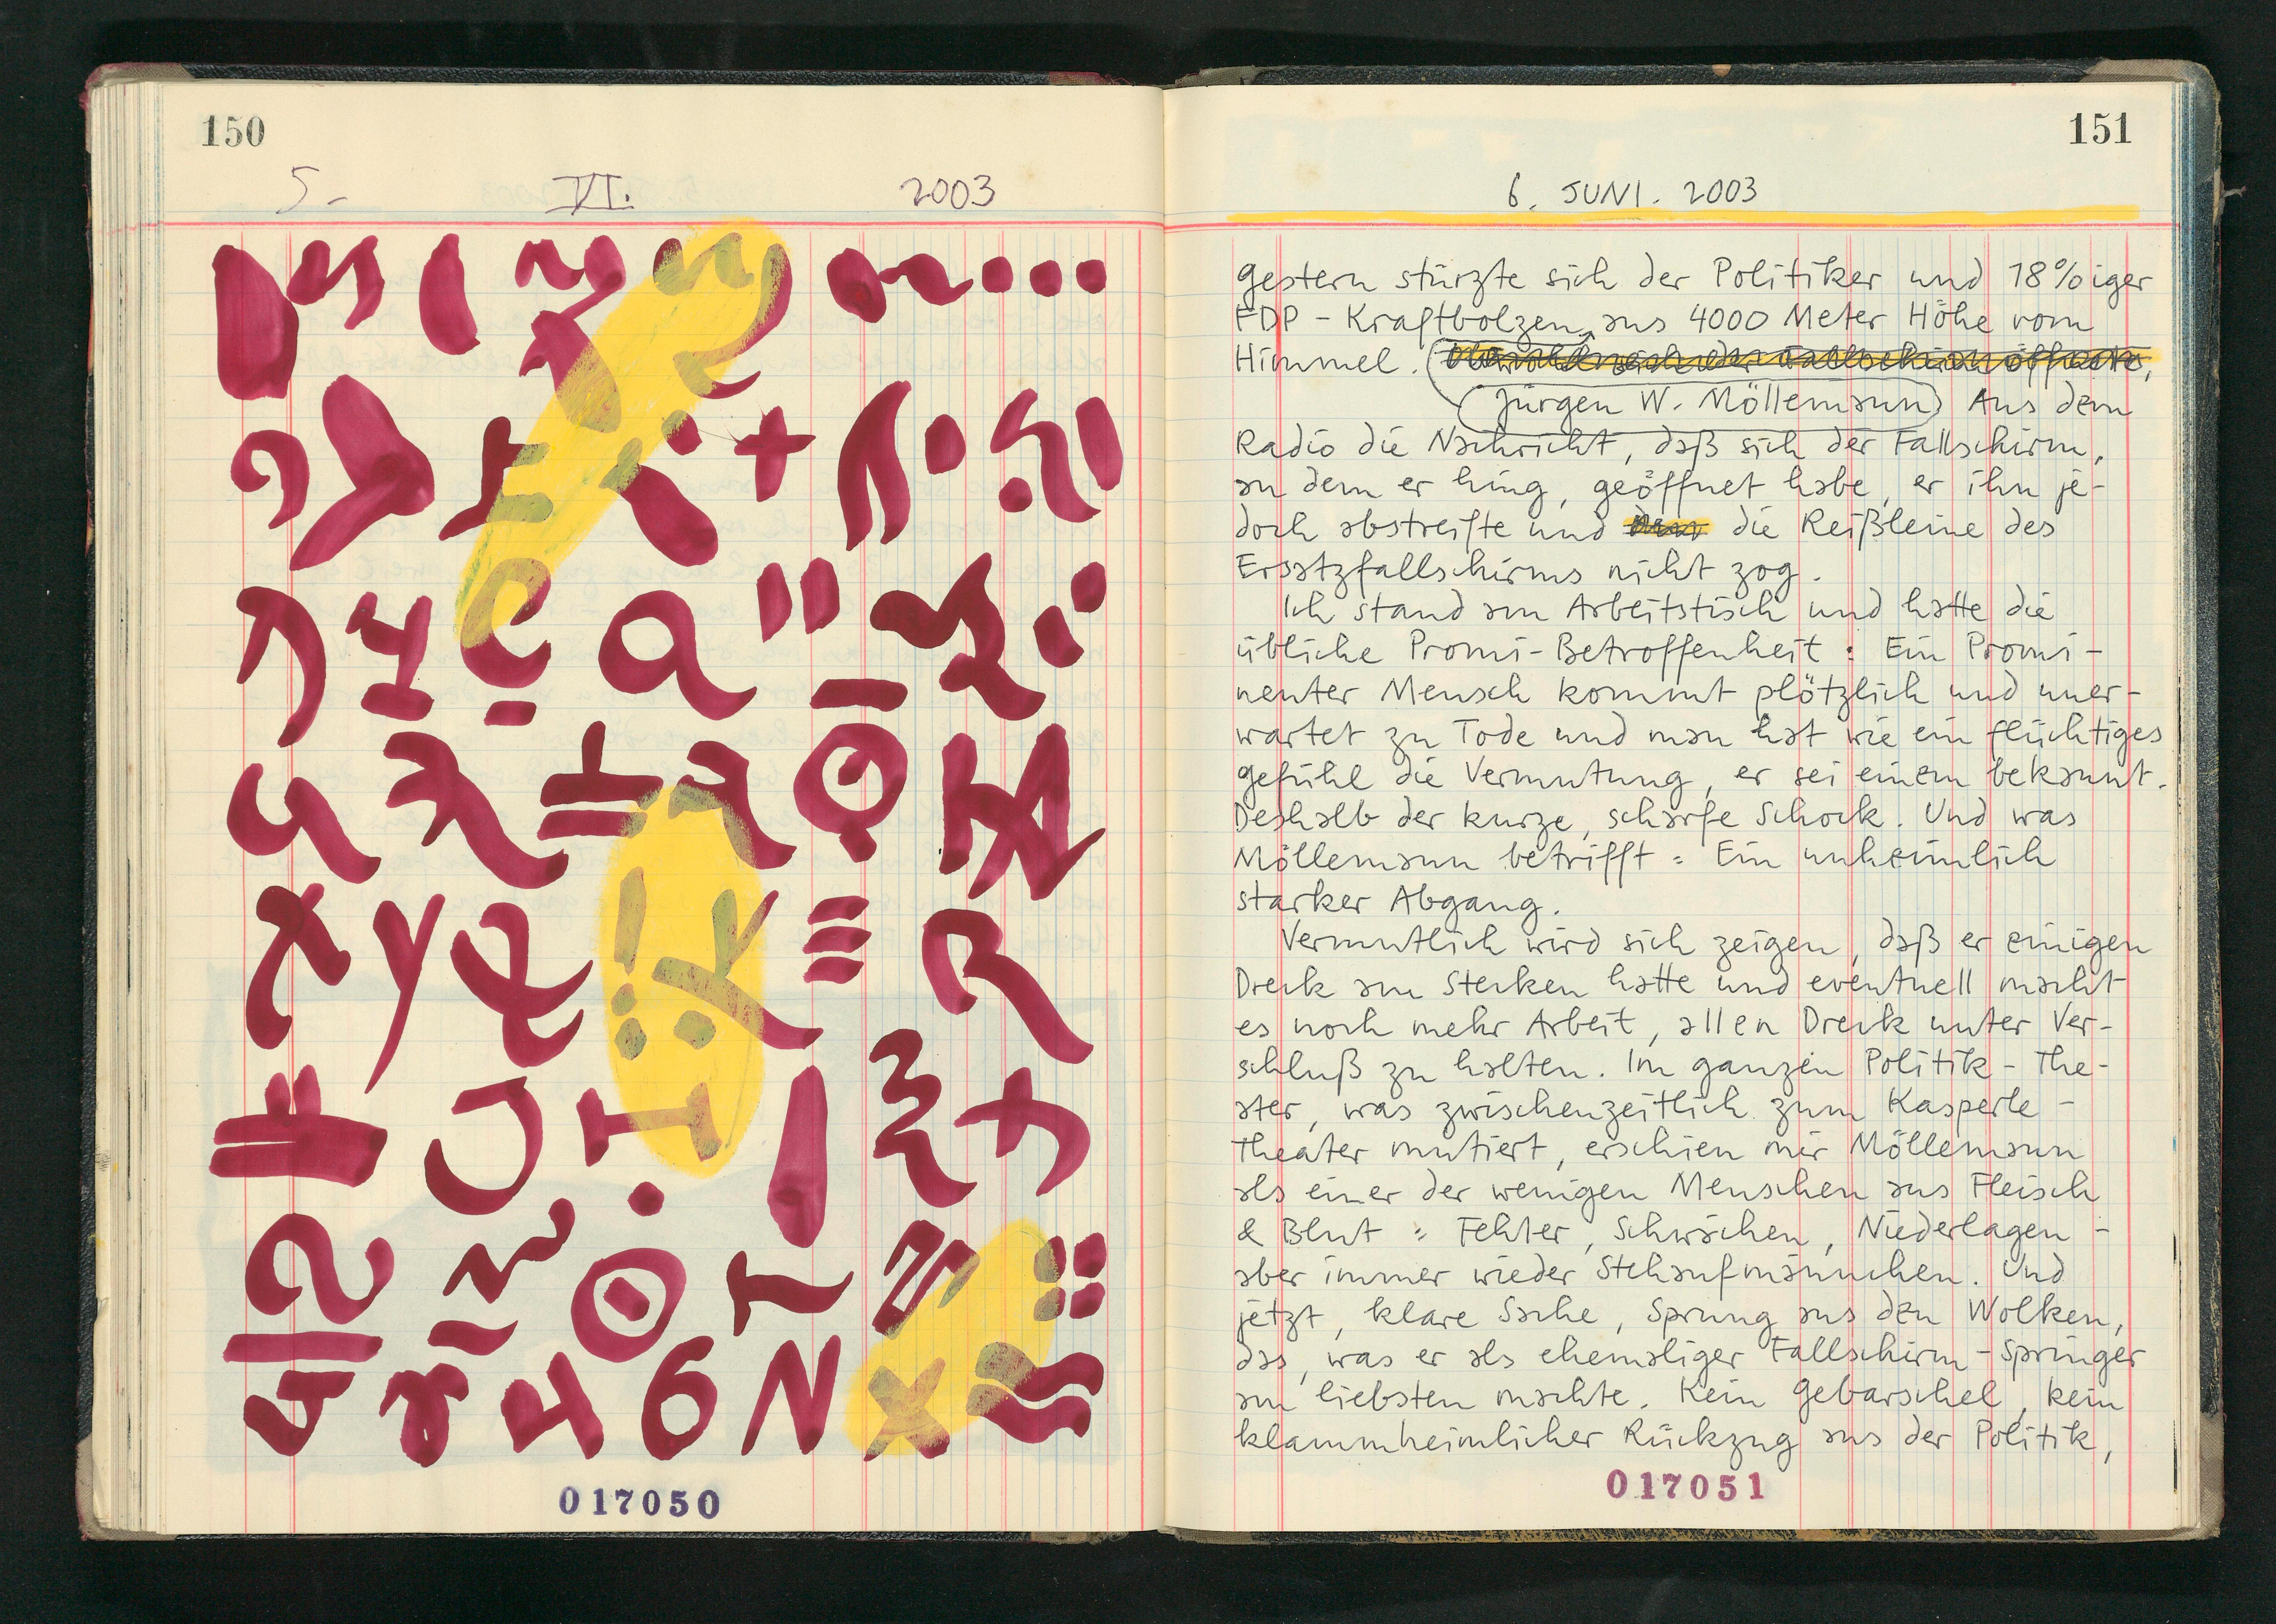 150
5. VI. 2003
017050
151
6. JUNI. 2003
gestern stürzte sich der Politiker und 18%iger
FDP - Kraftbolzen, aus 4000 Meter Höhe vom
Himmel.
Jürgen W. Möllemann Aus dem
Radio die Nachricht, daß sich der Fallschirm,
an dem er hing, geöffnet habe, er ihn je-
doch abstreifte und die Reißleine des
Ersatzfallschirms nicht zog.
Ich stand am Arbeitstisch und hatte die
übliche Promi-Betroffenheit: Ein Promi-
nenter Mensch kommt plötzlich und uner-
wartet zu Tode und man hat wie ein flüchtiges
gefühl die Vermutung, er sei einem bekannt.
Deshalb der kurze, scharfe Schock. Und was
Möllemann betrifft: Ein unheimlich
starker Abgang.
Vermutlich wird sich zeigen, daß er einigen
Dreck am Stecken hatte und eventuell macht
es noch mehr Arbeit, allen Dreck unter Ver-
schluß zu halten. Im ganzen Politik-The-
ater, was zwischenzeitlich zum Kasperle-
theater mutiert, erschien mir Möllemann
als einer der wenigen Menschen aus Fleisch
& Blut: Fehler, Schwächen, Niederlagen -
aber immer wieder Stehaufmännchen. Und
jetzt, klare Sache, Sprung aus den Wolken,
das, was er als ehemaliger Fallschirm-Springer
am liebsten machte. Kein gebarschel, kein
klammheimlicher Rückzug aus der Politik,
017051